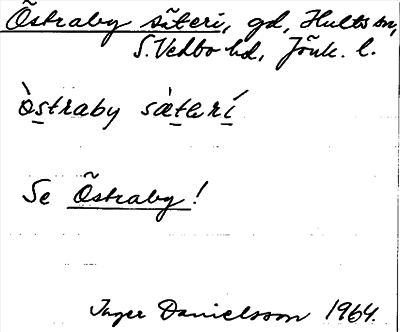 Östraby säteri, gd, Hults sn,
S. Vedbo hd, Jönk. l.
òstraby sàterí
Se Östraby!
Inger Danielsson 1964.